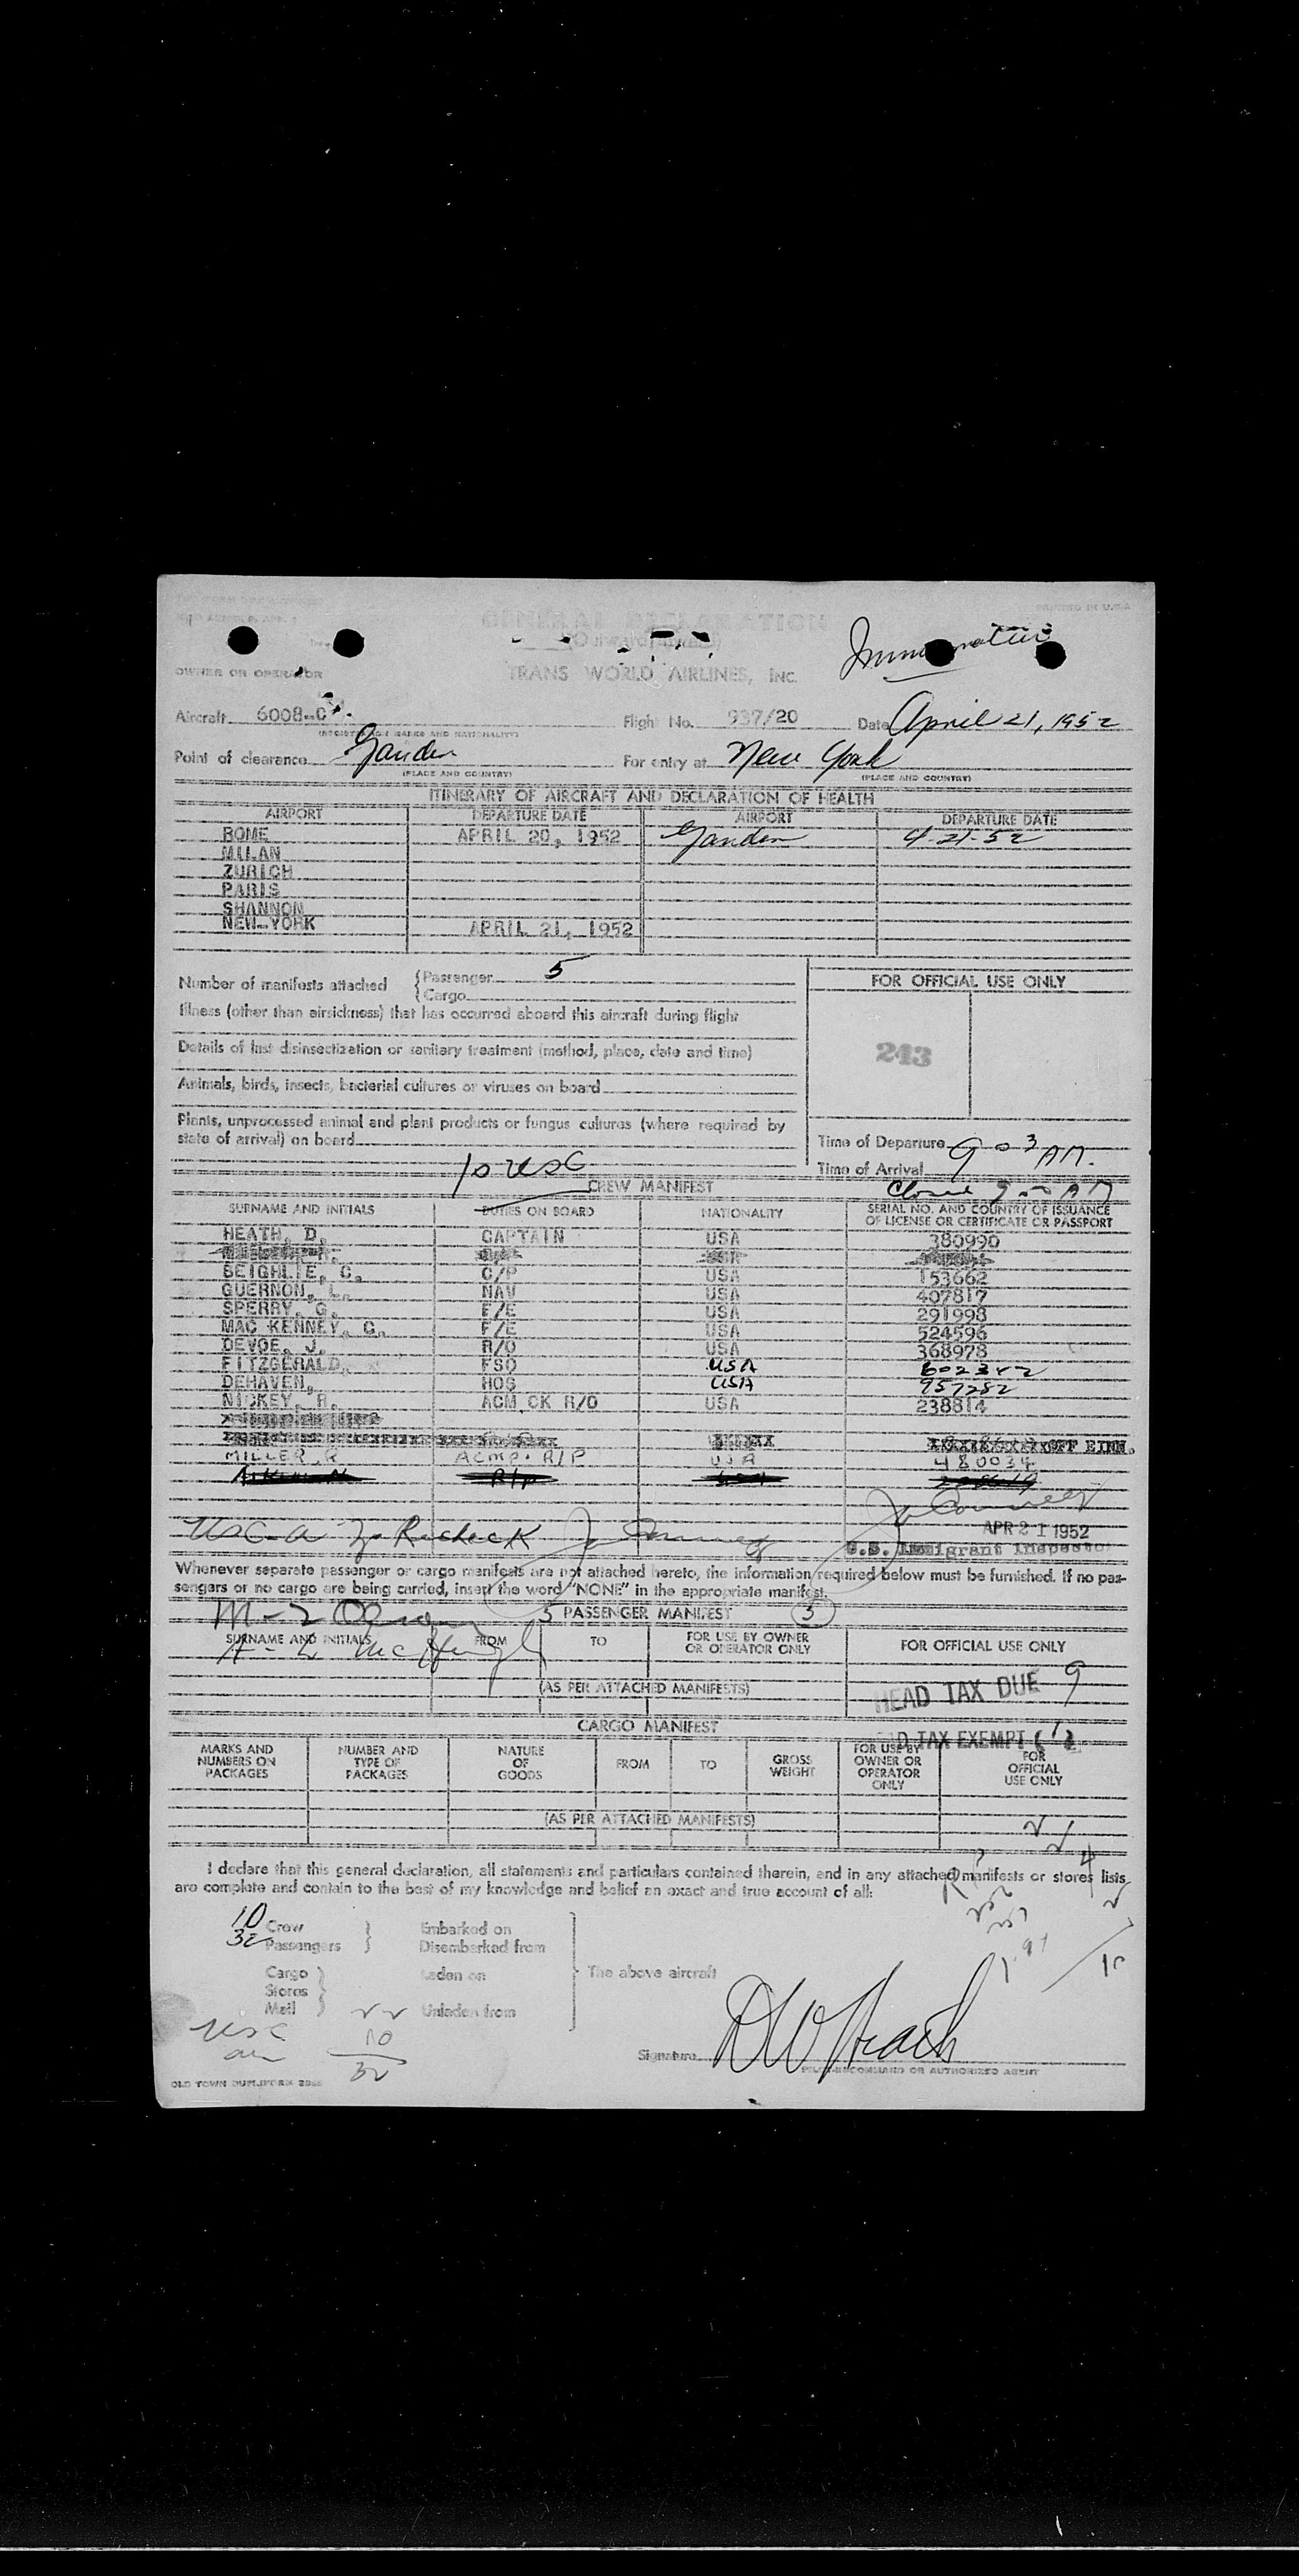 GENERAL DECLARATION
(Outward/Inward)
PRINTED IN U.S.A
OWNER OR OPERATOR TRANS WORLD AIRLINES, INC.
Aircraft 6008-C Flight No. 937/20 Date April 21, 1952
(REGISTRATION MARKS AND NATIONALITY)
Point of clearance Gander For entry at New York
(PLACE AND COUNTRY) (PLACE AND COUNTRY)
ITINERARY OF AIRCRAFT AND DECLARATION OF HEALTH
AIRPORT DEPARTURE DATE AIRPORT DEPARTURE DATE
ROME APRIL 20, 1952 Gander 4-21-52
MILAN
ZURICH
PARIS
SHANNON
NEW-YORK APRIL 21, 1952
Number of manifests attached {Passenger 5
{Cargo
FOR OFFICIAL USE ONLY
Illness (other than airsickness) that has occurred aboard this aircraft during flight
Details of last disinsectization or sanitary treatment (method, place, date and time)
243
Animals, birds, insects, bacterial cultures or viruses on board
Plants, unprocessed animal and plant products or fungus cultures (where required by
state of arrival) on board
Time of Departure 9 03 AM.
Time of Arrival
10 USC
CREW MANIFEST
SURNAME AND INITIALS DUTIES ON BOARD NATIONALITY SERIAL NO. AND COUNTRY OF ISSUANCE
OF LICENSE OR CERTIFICATE OR PASSPORT
HEATH, D. CAPTAIN USA 380990
BEIGHLIE, C. C/P USA 153662
GUERNON, L. NAV USA 407817
SPERRY, G. F/E USA 291998
MAC KENNEY, C. F/E USA 524596
DEVOE, J. R/O USA 368978
FITZGERALD, FSO USA 602342
DEHAVEN, HOS USA 957252
NICKEY, H. ACM CK R/O USA 238814
MILLER, R ACMP. R/P USA 480034
APR 21 1952
U.S. Immigrant Inspector
Whenever separate passenger or cargo manifests are not attached hereto, the information required below must be furnished. If no pas-
sengers or no cargo are being carried, insert the word "NONE" in the appropriate manifest.
5 PASSENGER MANIFEST
SURNAME AND INITIALS FROM TO FOR USE BY OWNER
OR OPERATOR ONLY FOR OFFICIAL USE ONLY
(AS PER ATTACHED MANIFESTS)
HEAD TAX DUE 9
CARGO MANIFEST
TAX EXEMPT
MARKS AND
NUMBERS ON
PACKAGES NUMBER AND
TYPE OF
PACKAGES NATURE
OF
GOODS FROM TO GROSS
WEIGHT FOR USE BY
OWNER OR
OPERATOR
ONLY FOR
OFFICIAL
USE ONLY
(AS PER ATTACHED MANIFESTS)
I declare that this general declaration, all statements and particulars contained therein, and in any attached manifests or stores lists
are complete and contain to the best of my knowledge and belief an exact and true account of all:
10 Crew } Embarked on
32 Passengers } Disembarked from
Cargo } Laden on The above aircraft
Stores
Mail } Unladen from
USC
10
32
Signature DW Heath
PILOT-IN-COMMAND OR AUTHORIZED AGENT